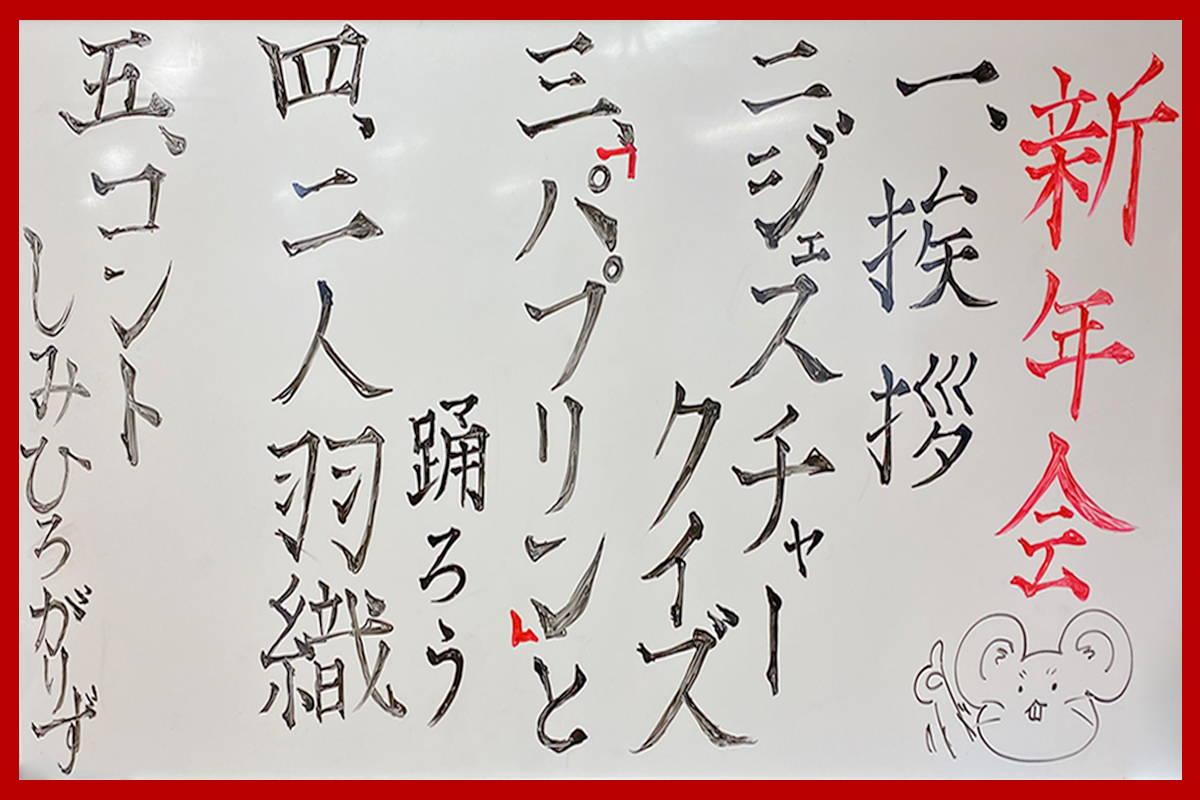 新年会
一、挨拶
二、ジェスチャー
クイズ
三、「パプリン」と
踊ろう
四、二人羽織
五、コント
しみひろがりず